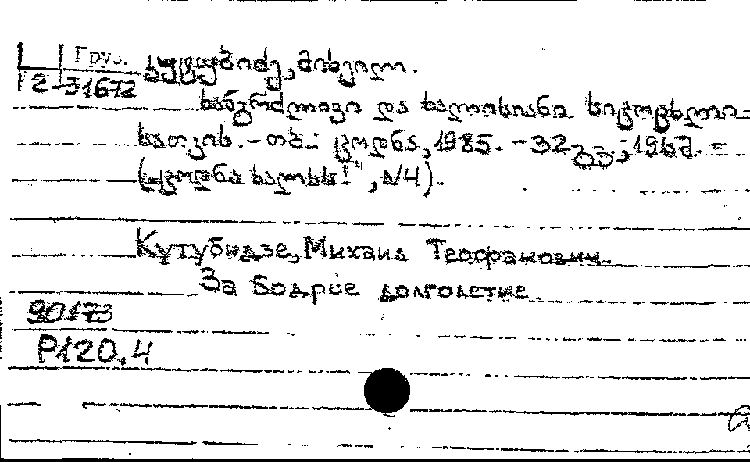 Груз.
2-31672
ქუთუბიძე, მიხეილ.
ხანგრძლივი და ხალისიანი სიცოცხლი-
სათვის. - თბ.: ცოდნა, 1985. - 32 გვ.; 19სმ. =
(„ცოდნა ხალხს!", №4).
Кутубидзе, Михаил Теофанович.
За бодрое долголетие.
90173
Р120.4